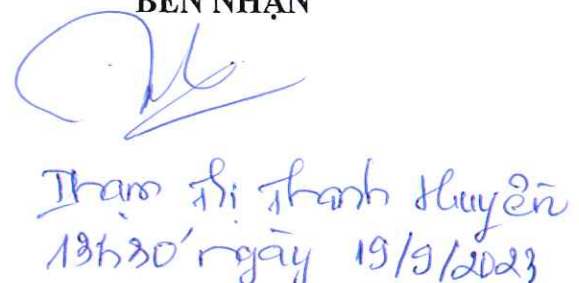 BÊN NHẬN
Phạm Thị Thanh Huyền
13h30' ngày 19/9/2023